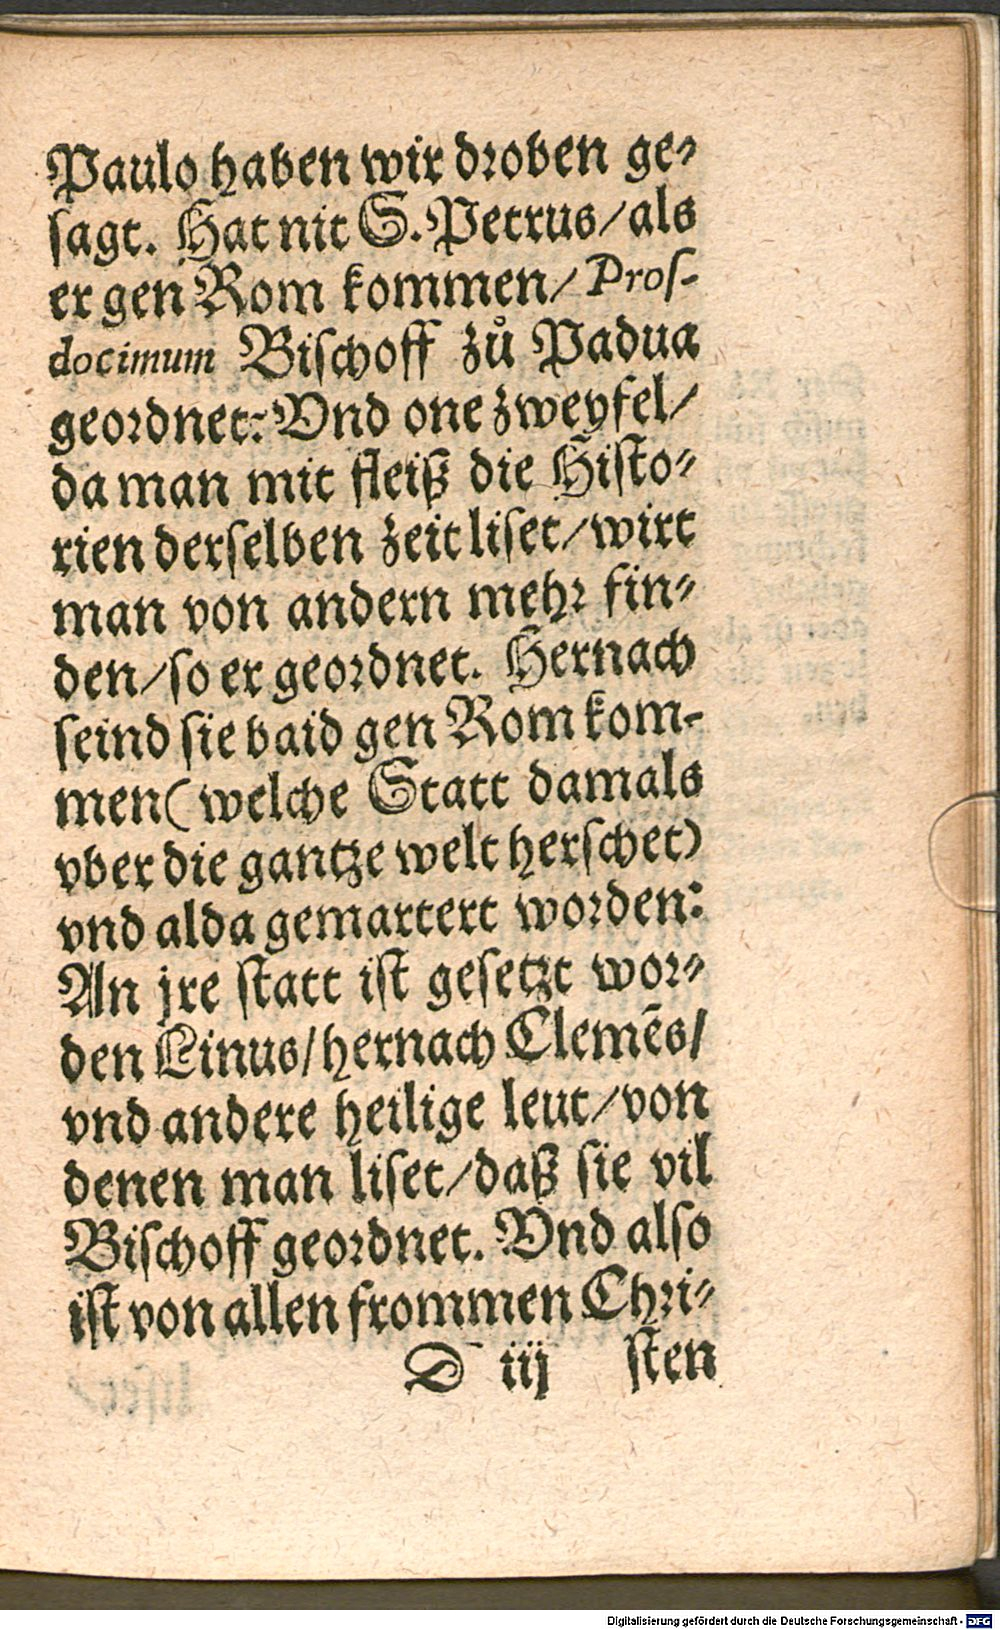 Paulo haben wir droben ge-
ſagt. Hat nit S. Petrus/ als
er gen Rom kommen/ Proſ-
docimum Biſchoff zů Padua
geordnet: Vnd one zweyfel/
da man mit fleiß die Hiſto-
rien derſelben zeit liſet/ wirt
man von andern mehr fin-
den/ ſo er geordnet. Hernach
ſeind ſie baid gen Rom kom-
men (welche Statt damals
vber die gantze welt herſchet)
vnd alda gemartert worden:
An jre ſtatt iſt geſetzt wor-
den Linus/ hernach Clemẽs/
vnd andere heilige leut/ von
denen man liſet/ daß ſie vil
Biſchoff geordnet. Vnd alſo
iſt von allen frommen Chri-
D iij ſten
Digitalisierung gefördert durch die Deutsche Forschungsgemeinschaft - DFG